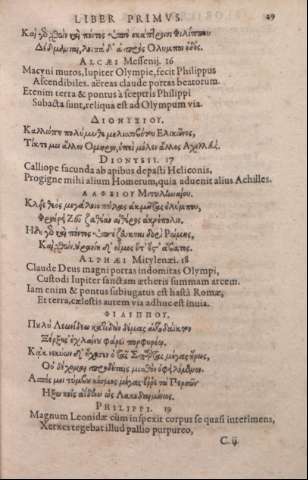 LIBER PRIMVS. 29
Καὶ γὰ χθὼν καὶ πόντος ὑπὸ σκήπτροισι Φιλίππου
Δέδμηνται, λοιπὰ δ' ἁ πρὸς Ὄλυμπον ὁδός.
ALCÆI Messenij. 16
Macyni muros, Iupiter Olympie, fecit Philippus
Ascendibiles. aëreas claude portas beatorum.
Etenim terra & pontus à sceptris Philippi
Subacta sunt, reliqua est ad Olympum via.
ΔΙΟΝΥΣΙΟΥ.
Καλλιόπη πολύμυθε μελισσοβότου Ἑλικῶνος,
Τίκτε μοι ἄλλον Ὅμηρον, ἐπεὶ μόλεν ἄλλος Ἀχιλλεύς.
DIONYSII. 17
Calliope facunda ab apibus depasti Heliconis,
Progigne mihi alium Homerum, quia aduenit alius Achilles.
ΑΛΦΕΙΟΥ Μιτυληναίου.
Κλεῖε θεὸς μεγάλοιο πύλας ἀκμῆτας ὀλύμπου,
Φρούρει Ζεῦ ζαθέαν αἰθέρος ἀκρόπολιν.
Ἤδη γὰρ καὶ πόντος ὑπέζευκται δορὶ Ῥώμης,
Καὶ χθὼν,
ALPHÆI Mitylenæi. 18
Claude Deus magni portas indomitas Olympi,
Custodi Iupiter sanctam ætheris summam arcem.
Iam enim & pontus subiugatus est hasta Romæ,
Et terra, cælestis autem via adhuc est inuia.
ΦΙΛΙΠΠΟΥ.
Πουλὺ Λεωνίδεω κατιδὼν δέμας αὐτοδάϊκτον
Ξέρξης ἐχλαίνου φάρει πορφυρέῳ.
Κἠκ νεκύων δ' ἤχησεν ὁ τᾶς Σπάρτας μέγας ἥρως,
Οὐ δέχομαι προδόταις μισθὸν ὀφειλόμενον.
Ἀσπὶς μοι τύμβου κόσμος μέγας· αἶρε τὰ Περσῶν
Ἥξω κεἰς ἀΐδην ὡς Λακεδαιμόνιος.
PHILIPPI. 19
Magnum Leonidæ cùm inspexit corpus se quasi interimens,
Xerxes tegebat illud pallio purpureo,
C. ij.